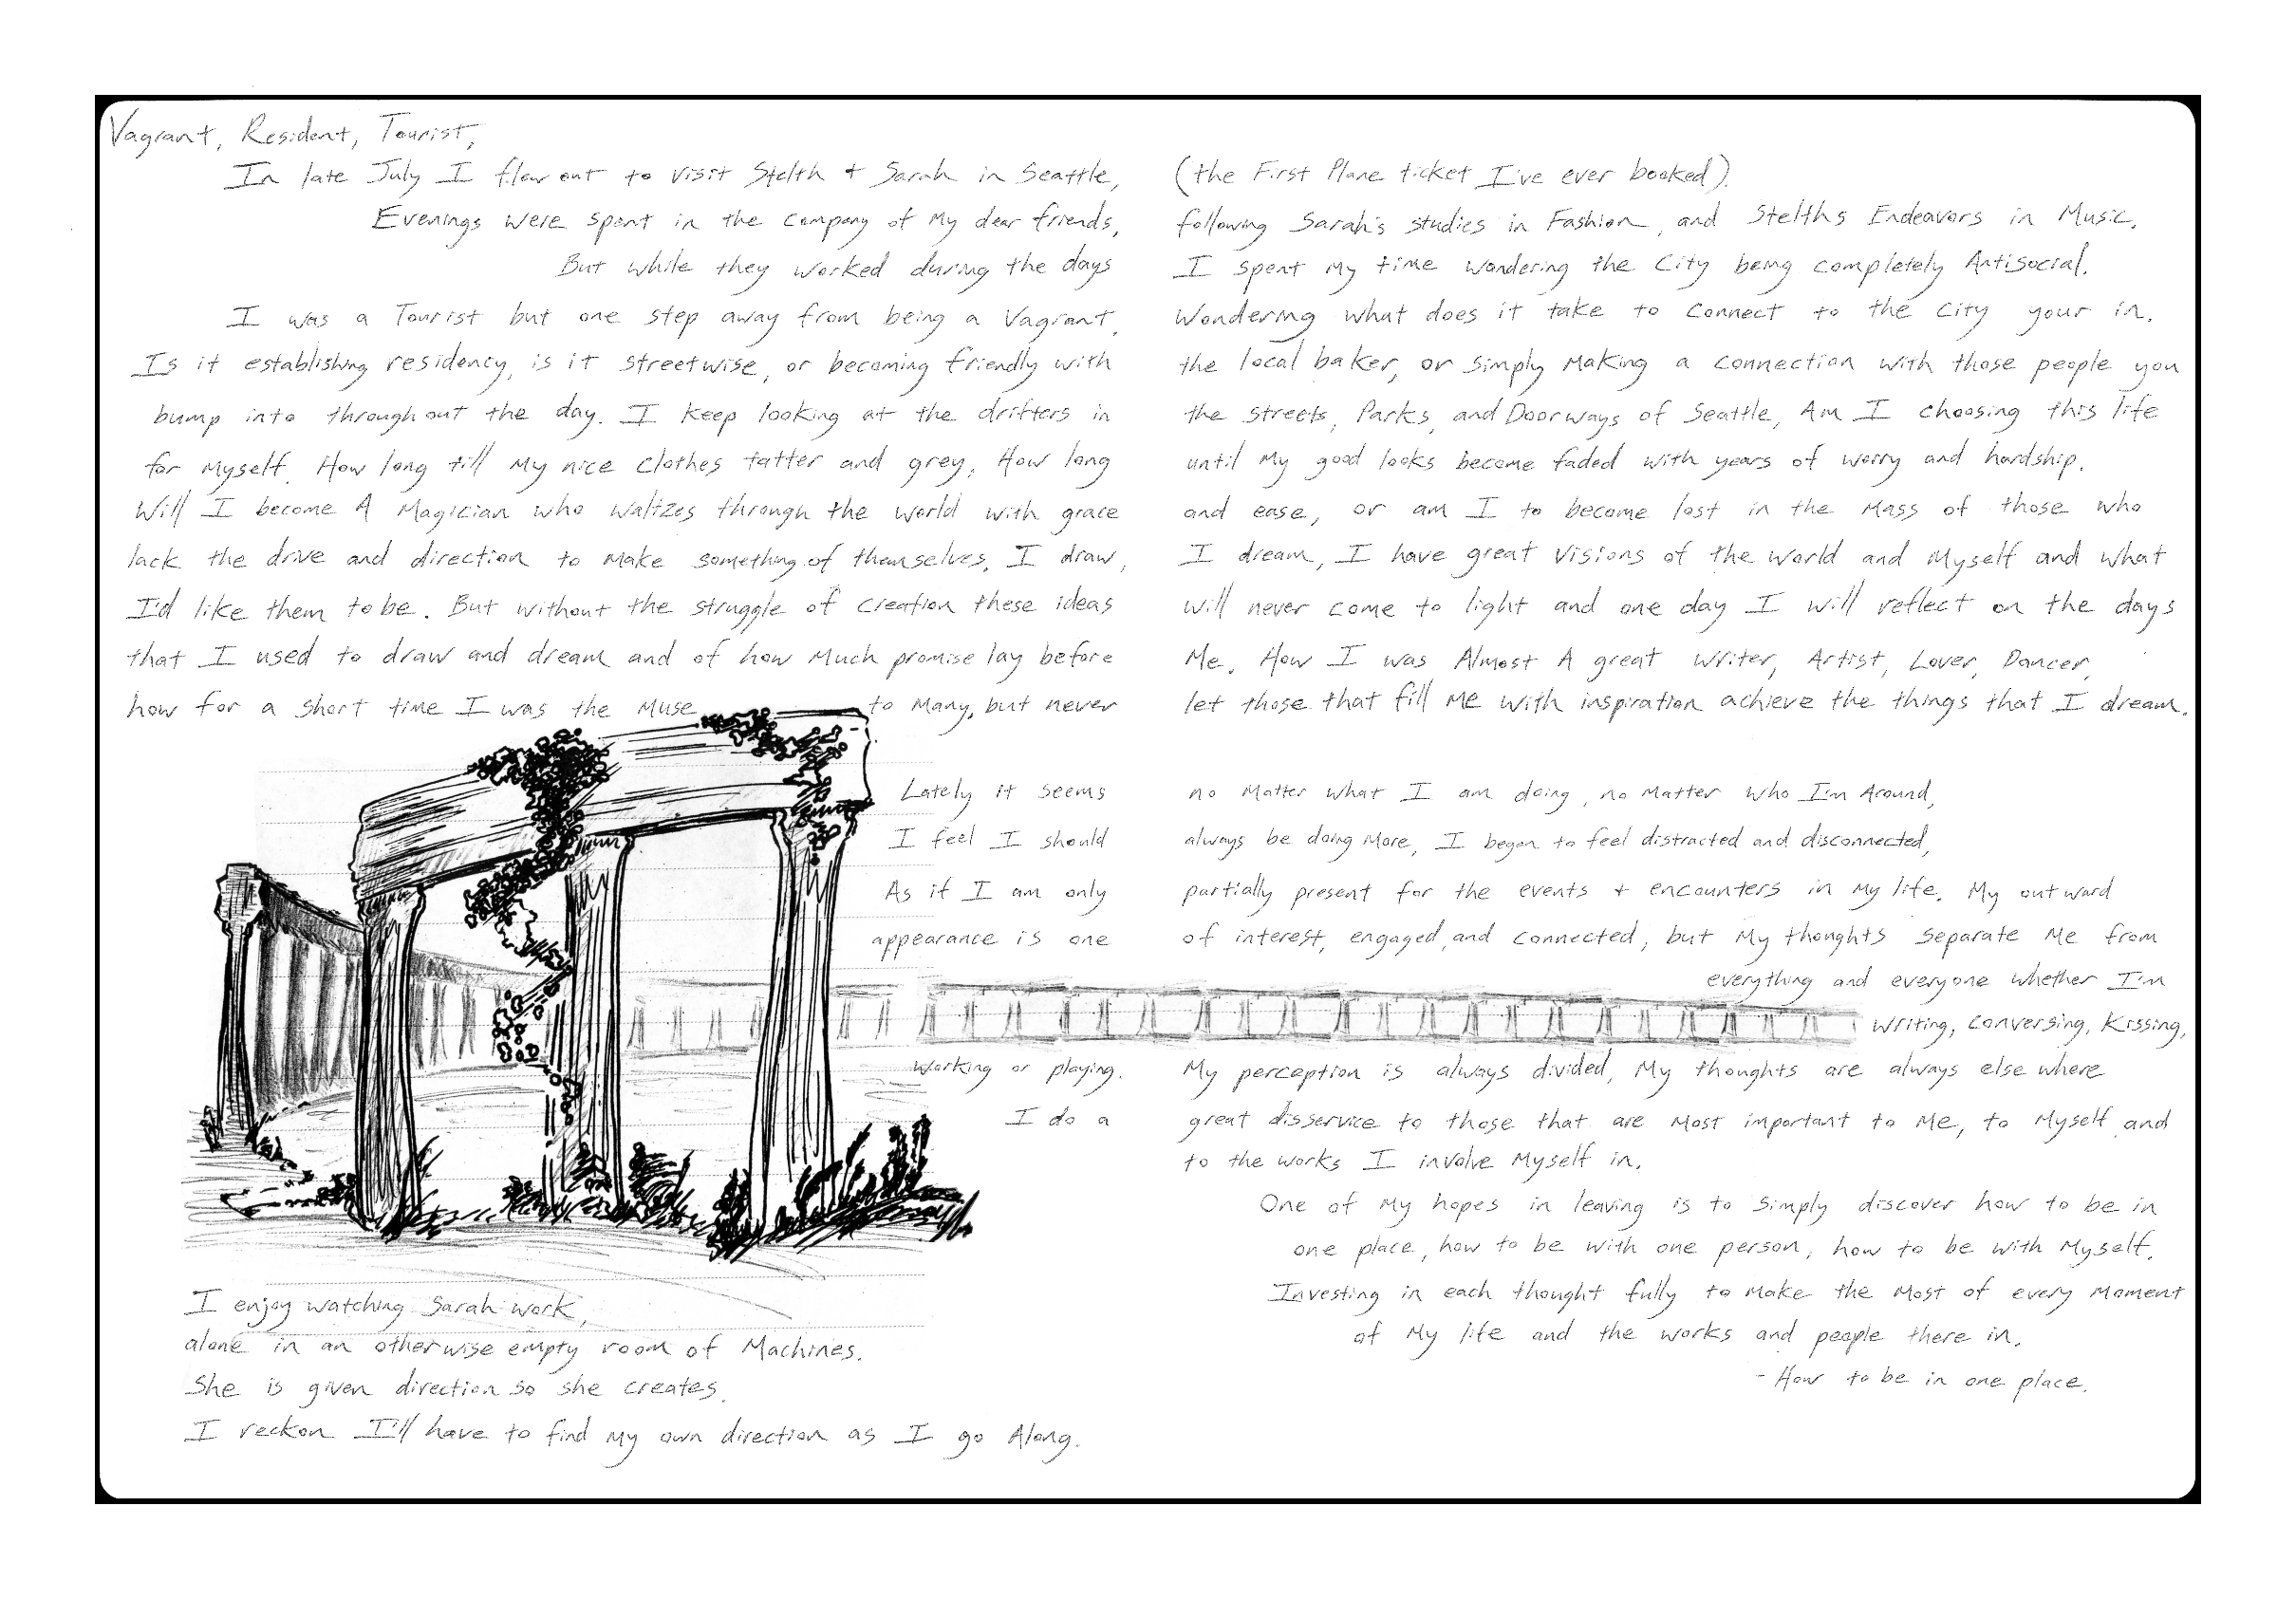 Vagrant, Resident, Tourist,
In late July I flew out to visit Stelth + Sarah in Seattle, (the First Plane ticket I've ever booked).
Evenings were spent in the company of my dear friends, following Sarah's studies in Fashion, and Stelths Endeavors in Music.
But while they worked during the days I spent my time wondering the City being completely Antisocial.
I was a Tourist but one step away from being a Vagrant, Wondering what does it take to connect to the city your in.
Is it establishing residency, is it streetwise, or becoming friendly with the local baker, or simply making a connection with those people you
bump into throughout the day. I keep looking at the drifters in the streets, Parks, and Doorways of Seattle, Am I choosing this life
for myself. How long till my nice clothes tatter and grey, How long until my good looks become faded with years of worry and hardship.
Will I become A Magician who waltzes through the world with grace and ease, or am I to become lost in the mass of those who
lack the drive and direction to make something of themselves. I draw, I dream, I have great visions of the world and myself and what
I'd like them to be. But without the struggle of creation these ideas will never come to light and one day I will reflect on the days
that I used to draw and dream and of how much promise lay before me. How I was Almost A great writer, Artist, Lover, Dancer,
how for a short time I was the muse to many, but never let those that fill me with inspiration achieve the things that I dream.
Lately it seems no matter what I am doing, no matter who I'm Around,
I feel I should always be doing more, I began to feel distracted and disconnected,
As if I am only partially present for the events + encounters in my life. My outward
appearance is one of interest, engaged, and connected, but my thoughts separate me from
everything and everyone whether I'm
writing, conversing, kissing,
working or playing. My perception is always divided, my thoughts are always else where
I do a great disservice to those that are most important to me, to myself and
to the works I involve myself in.
One of my hopes in leaving is to simply discover how to be in
one place, how to be with one person, how to be with myself.
Investing in each thought fully to make the most of every moment
of my life and the works and people there in.
- How to be in one place.
I enjoy watching Sarah work,
alone in an otherwise empty room of Machines.
She is given direction so she creates.
I reckon I'll have to find my own direction as I go Along.